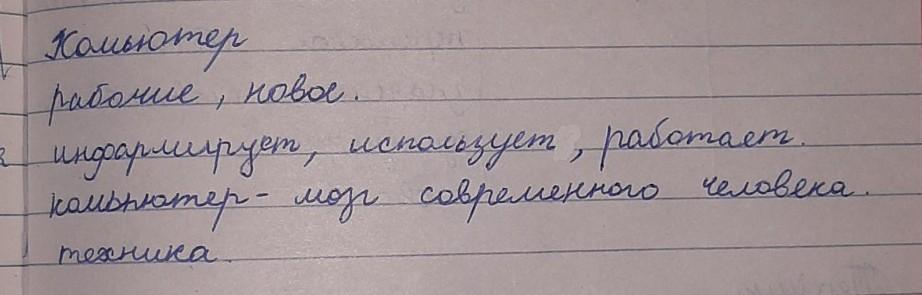 Комьютер
рабочие, новое.
информирует, использует, работает.
компьютер - мозг современного человека.
техника.